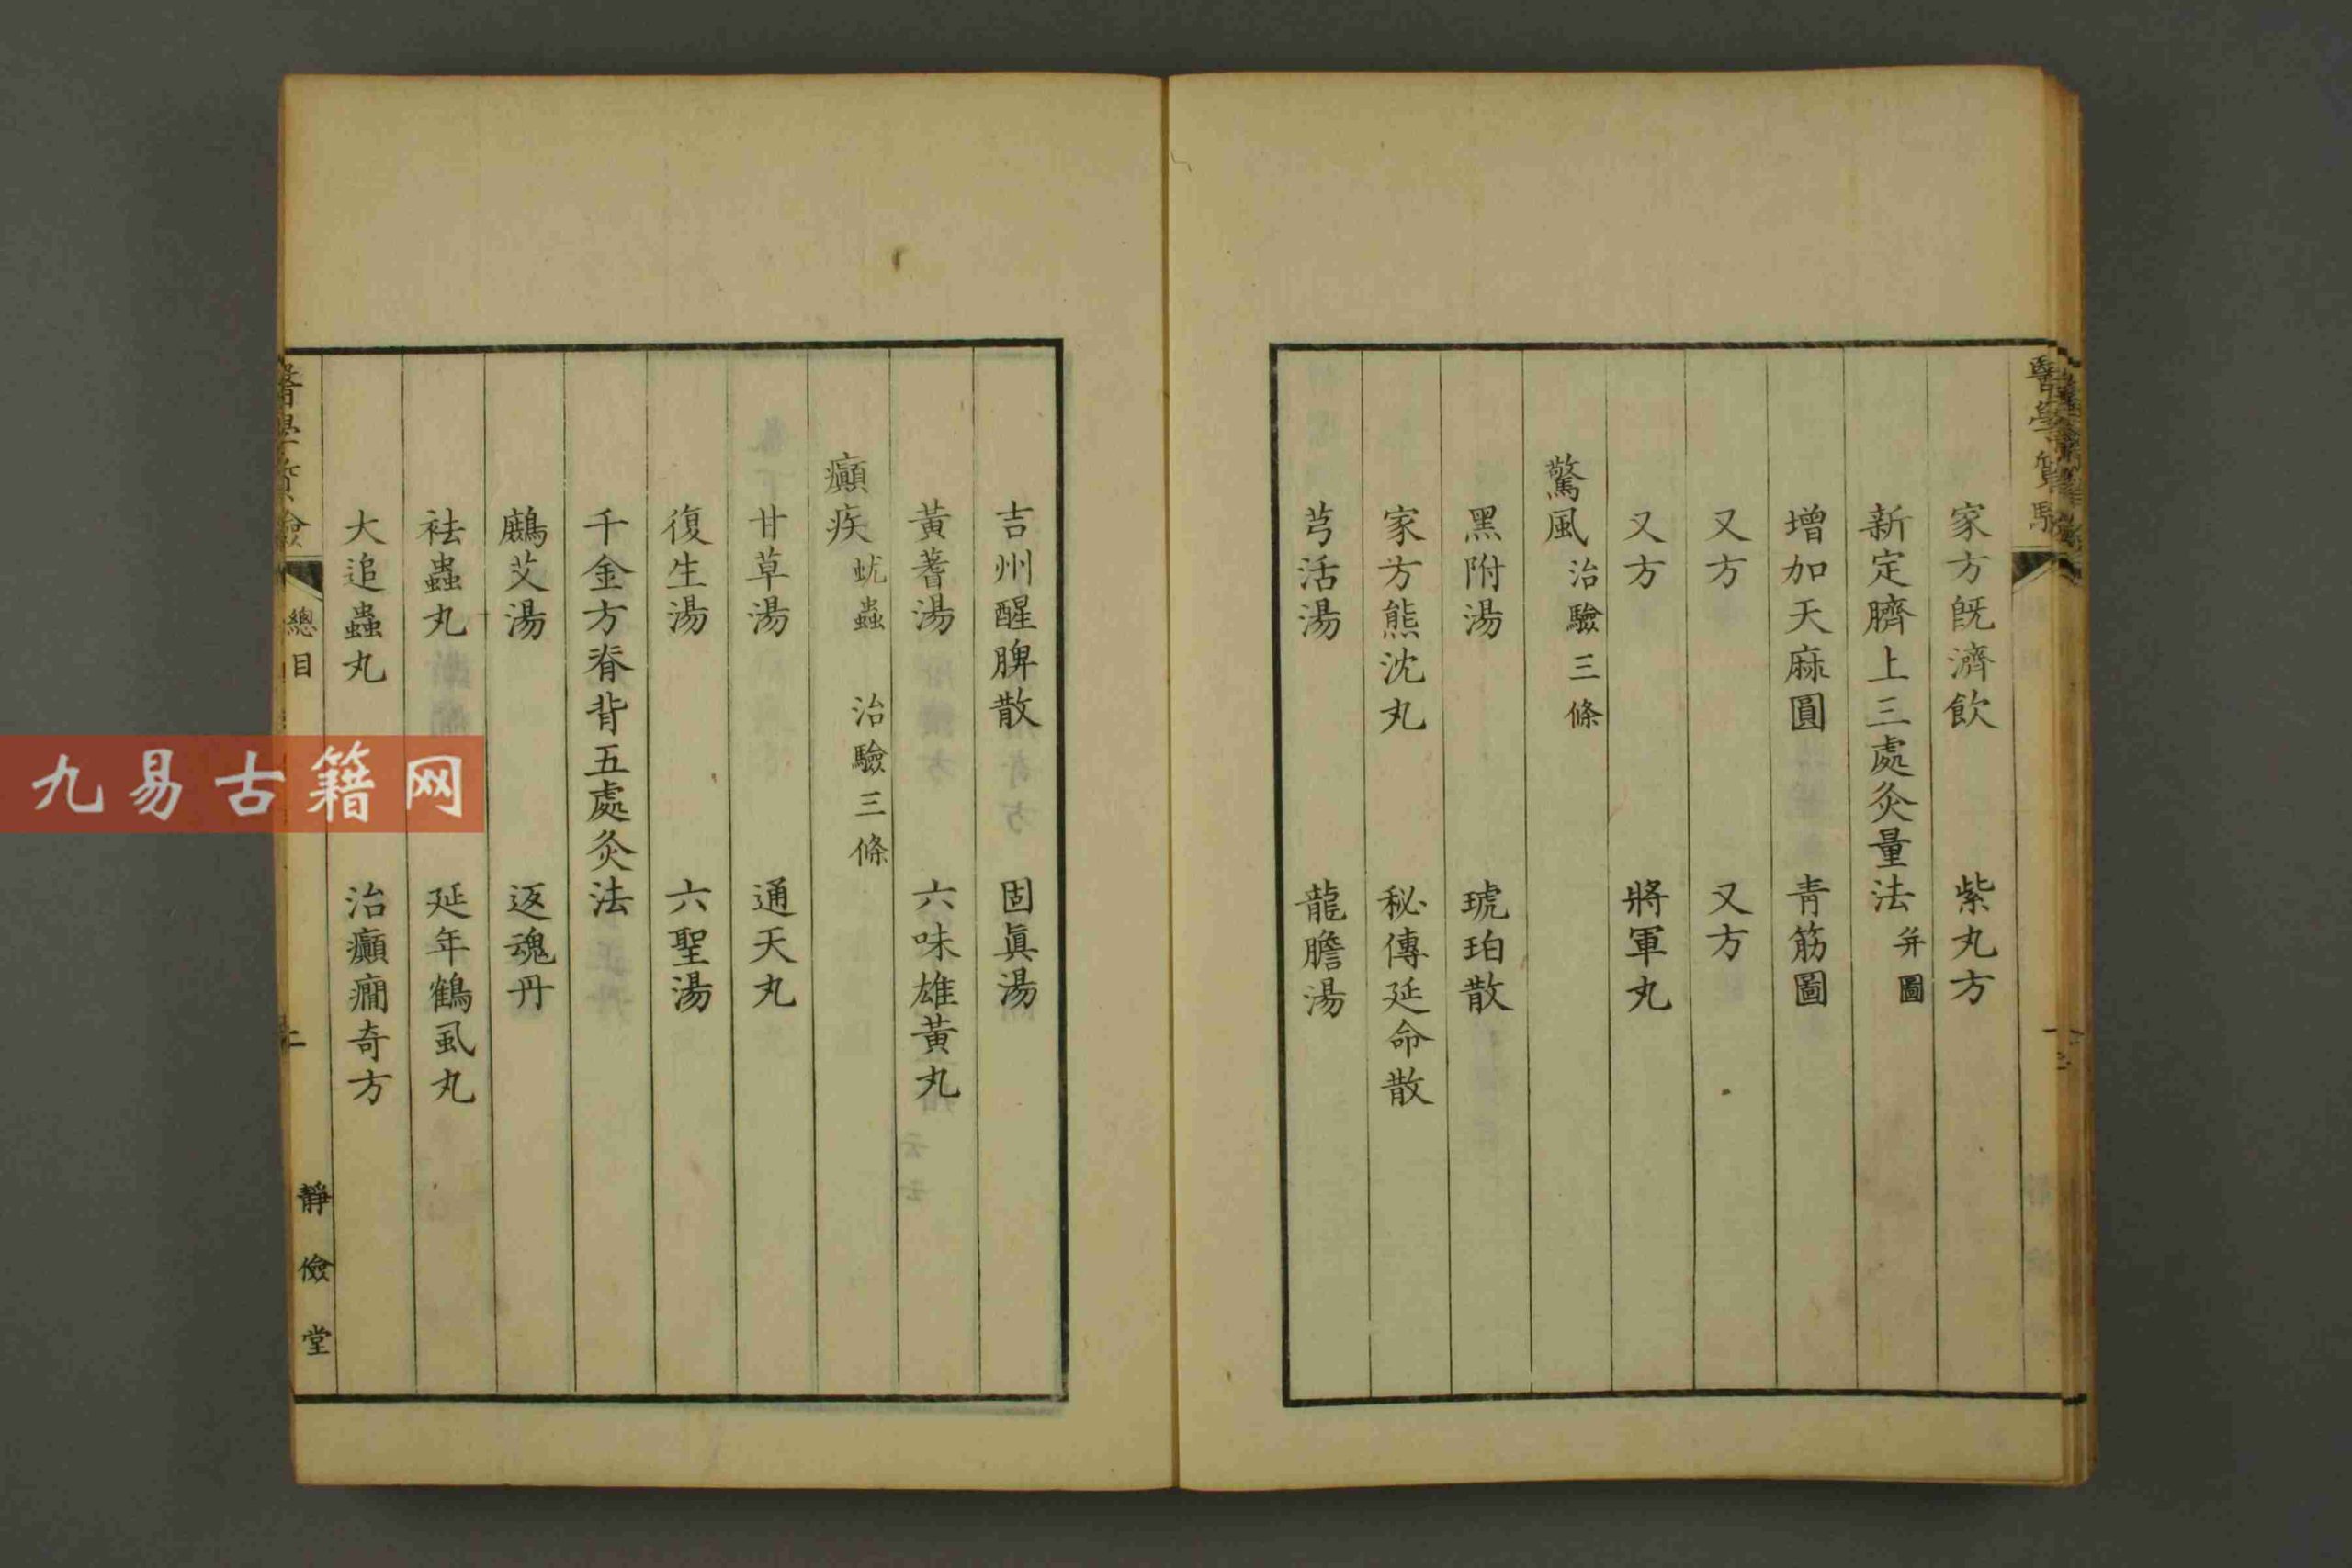 醫學質驗
家方既濟飲　紫丸方
新定臍上三處灸量法 并圖
增加天麻圓　青筋圖
又方　又方
又方　將軍丸
驚風 治驗三條
黑附湯　琥珀散
家方熊沈丸　秘傳延命散
芎活湯　龍膽湯
吉州醒脾散　固眞湯
黃蓍湯　六味雄黃丸
癲疾 蚘蟲 治驗三條
甘草湯　通天丸
復生湯　六聖湯
千金方脊背五處灸法
鷓艾湯　返魂丹
袪蟲丸　延年鶴虱丸
大追蟲丸　治癲癎奇方
總目
靜儉堂
九易古籍网